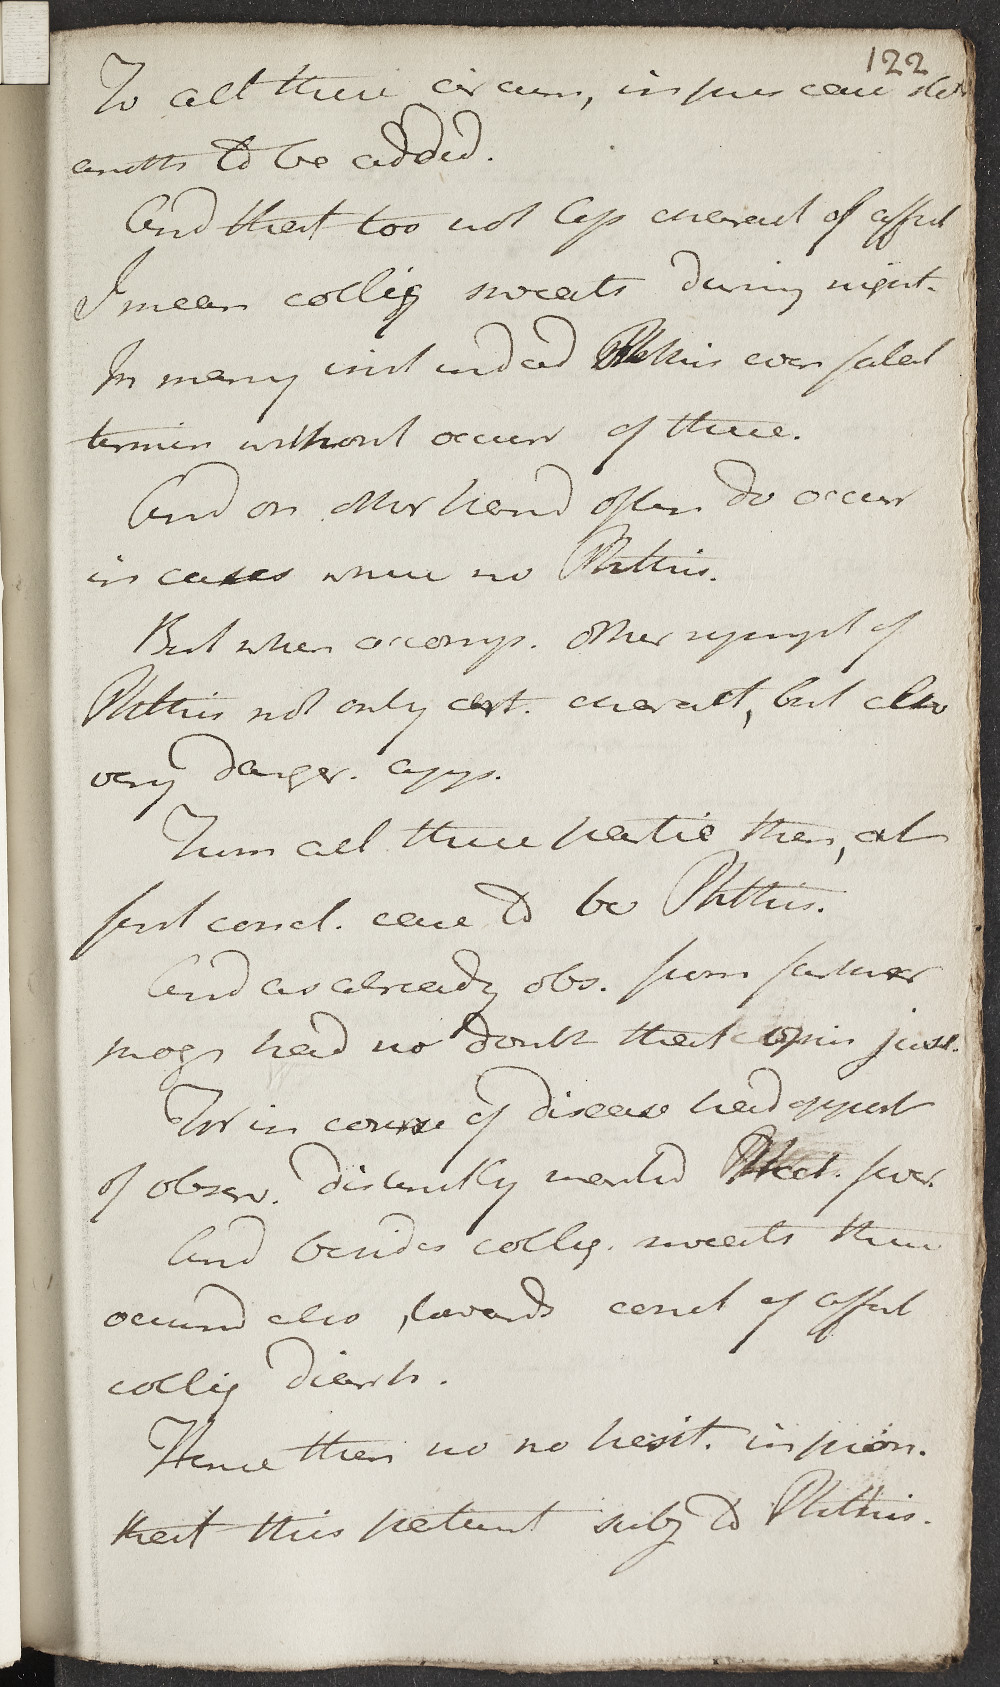 122
To all these circum, in pres case still
anoth to be added.
And that too not less charact of affect
I mean collig sweats during night.
In many inst indeed Phthis even fatal
termin without occurr of these.
And on other hand often do occur
in cases where no Phthis.
But when accomp. other sympt of
Phthis not only cert. charact, but also
very danger. app.
From all these partic then, at
first concl. case to be Phthis.
And as already obs. from farther
progr had no doubt that opin just.
For in course of disease had opport
of observ. distinctly marked Hect. fever.
And besides collig. sweats there
occurred also, towards concl of affect
collig Diarrh.
Hence then no no hesit. in pron.
that this patient subj to Phthis.